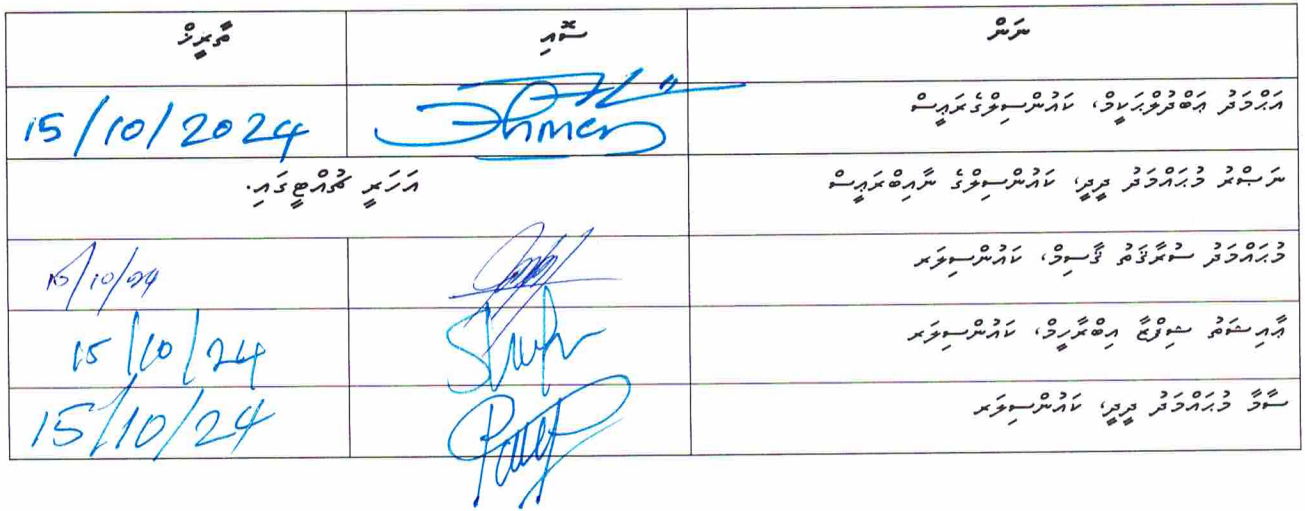 ނަން ސޮއި ތާރީޚް
އަޙްމަދު ޢަބްދުލްޙަކީމް، ކައުންސިލްގެރަޢީސް 15/10/2024
ނަޞްރު މުޙައްމަދު ދީދީ، ކައުންސިލްގެ ނާއިބްރަޢީސް އަހަރީ ޗުއްޓީގައި.
މުޙައްމަދު ސުރާޤަތު ޤާސިމް، ކައުންސިލަރ 15/10/24
ޢާއިޝަތު ޝިފްޒާ އިބްރާހީމް، ކައުންސިލަރ 15/10/24
ސާމާ މުޙައްމަދު ދީދީ، ކައުންސިލަރ 15/10/24